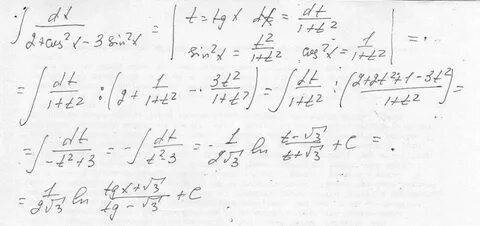 ∫ dx / (2+cos²x-3sin²x) = | t=tgx dx = dt/(1+t²) sin²x = t²/(1+t²) cos²x = 1/(1+t²) | =
= ∫ dt/(1+t²) : (2 + 1/(1+t²) - 3t²/(1+t²)) = ∫ dt/(1+t²) : ((2+2t²+1-3t²)/(1+t²)) =
= ∫ dt/(-t²+3) = -∫ dt/(t²-3) = -1/(2√3) ln (t-√3)/(t+√3) + C =
= 1/(2√3) ln (tgx+√3)/(tg-√3) + C